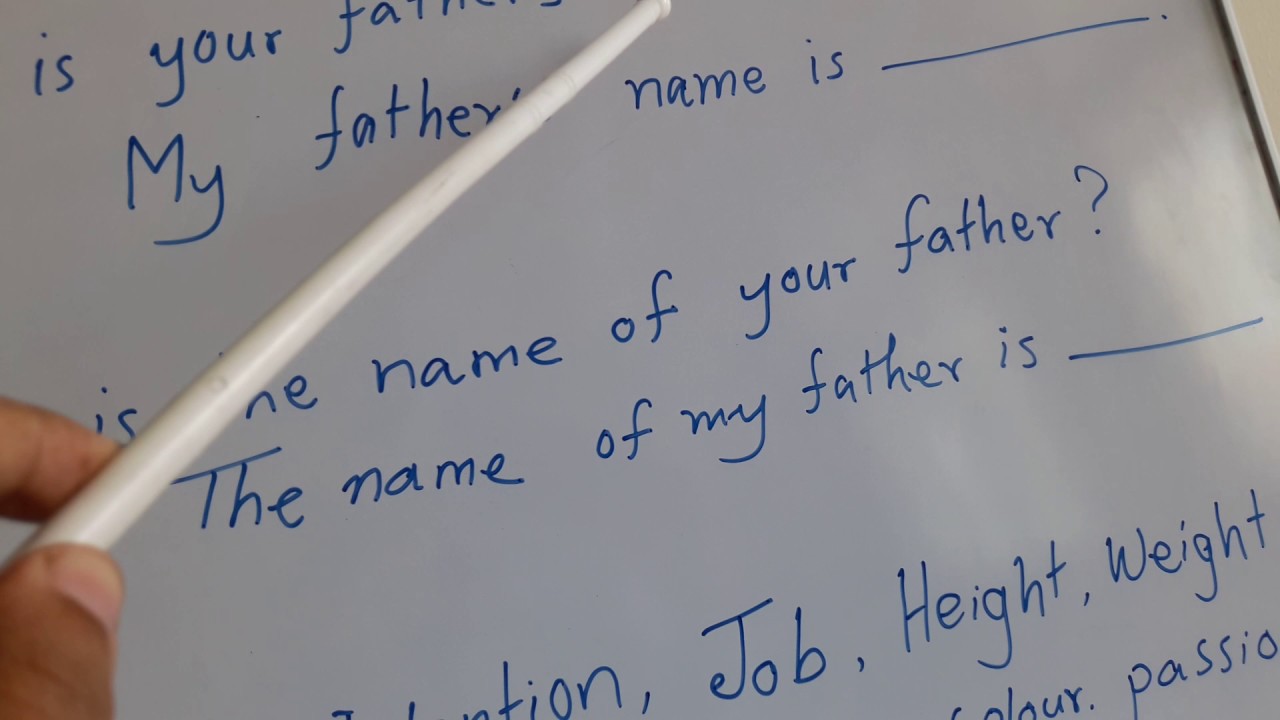 is your father's
My father's name is ______.
is the name of your father?
The name of my father is ______
Job, Height, Weight
colour. passio